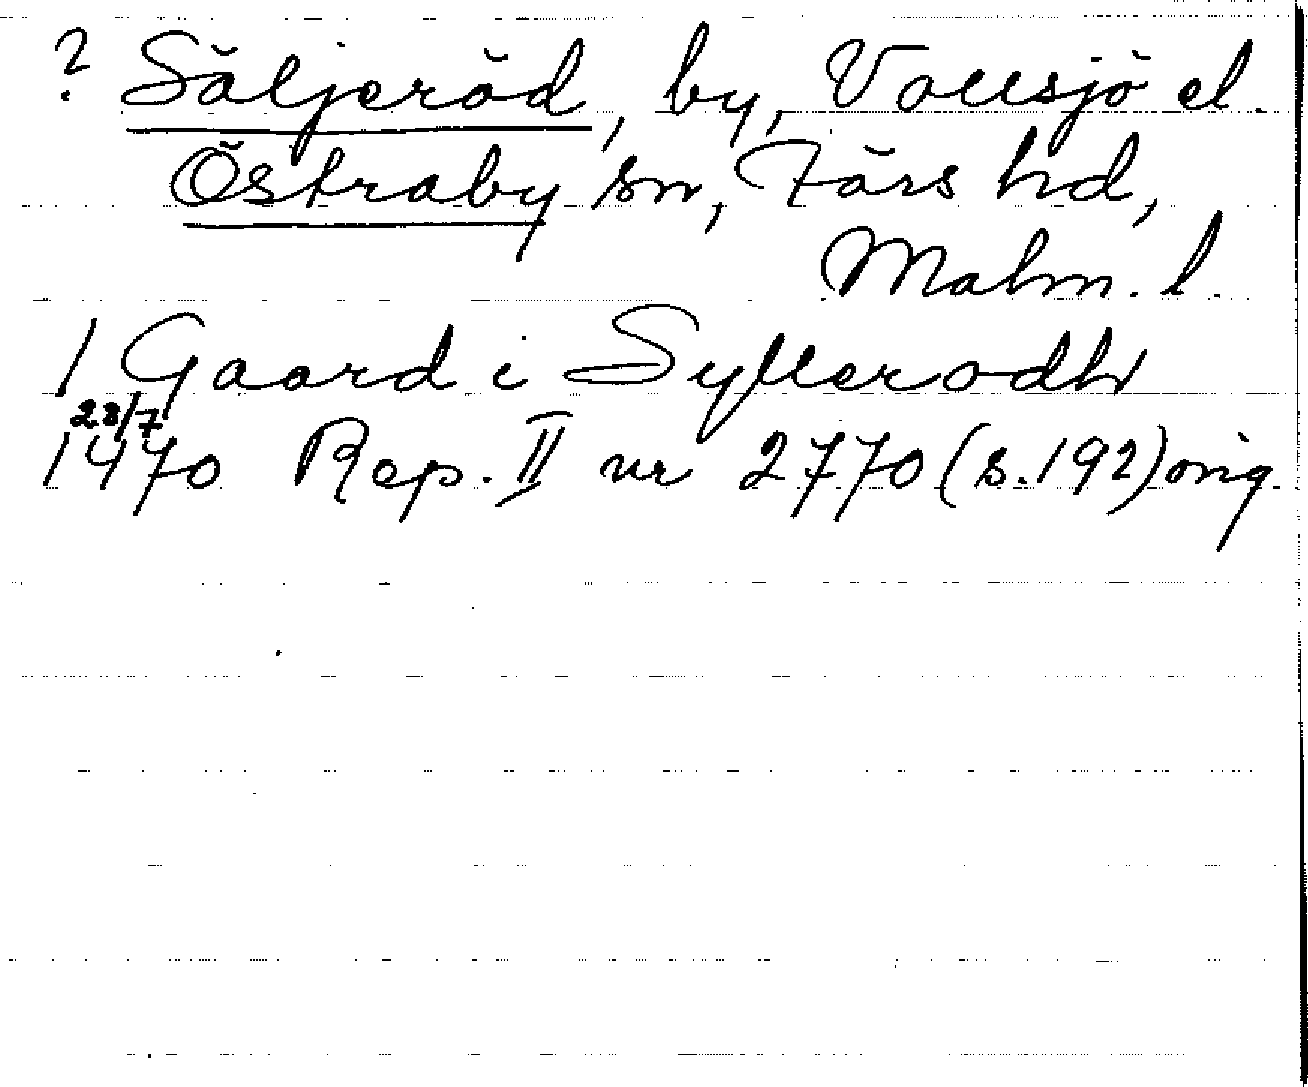 ? Säljeröd, by, Vollsjö el.
Östraby sn, Färs hd,
Malm. l.
1 Gaard i Syllerodh
23/7
1470 Rep. II nr 2770 (s. 192) orig